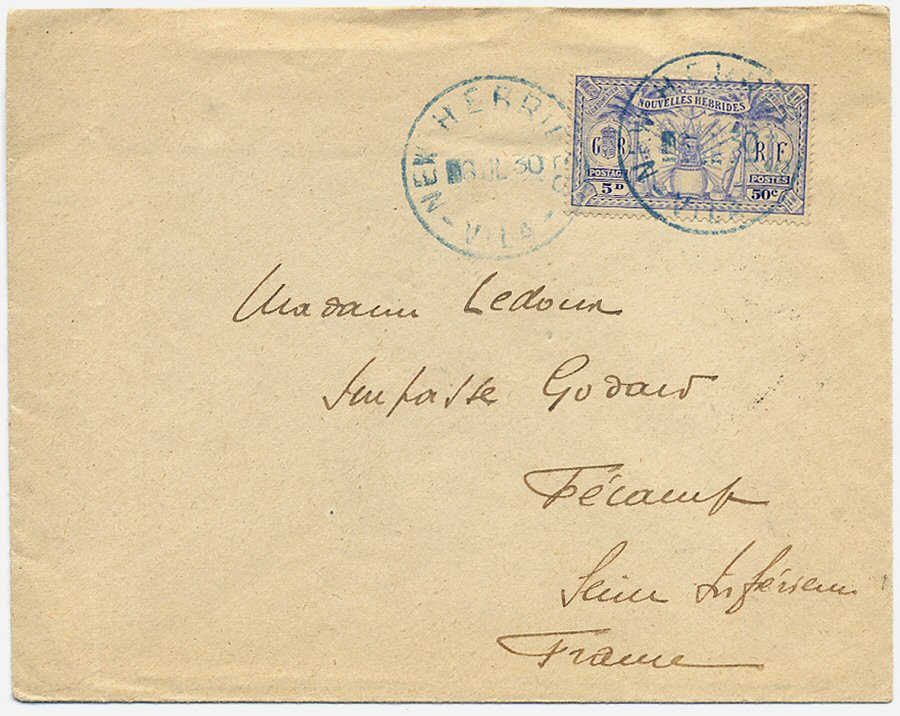 NEW HEBRID
JUL 30
VILA
NOUVELLES HEBRIDES
G R
R F
POSTAGE
POSTES
5D
50c
NEW HEBRI
30
VILA
Madame Ledoux
Impasse Godard
Fécamp
Seine Inférieure
France